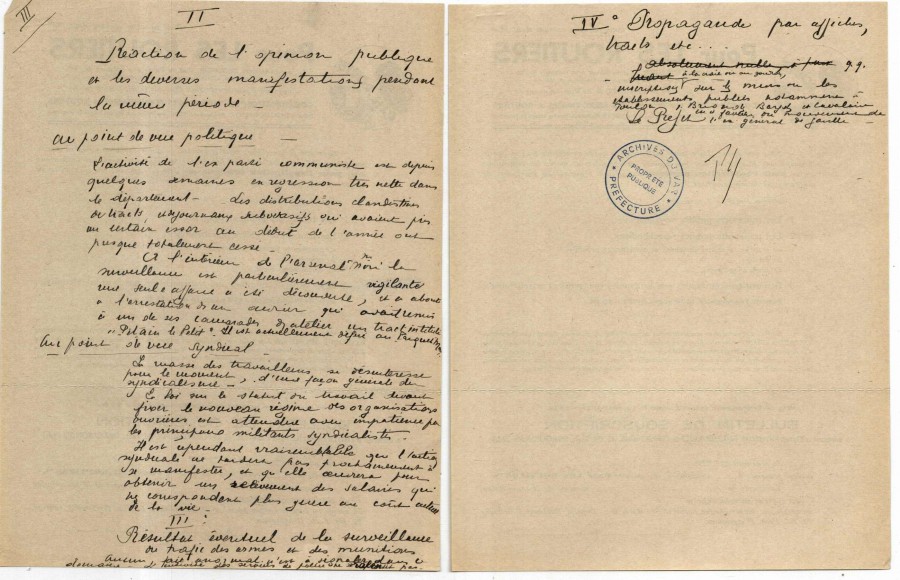 III
II
Réaction de l'opinion publique
et les diverses manifestations pendant
la même période -
Au point de vue politique -
L'activité de l'ex parti communiste est depuis
quelques semaines en régression très nette dans
le département - Les distributions clandestines
de tracts ou journaux subversifs qui avaient pris
un certain essor au début de l'année ont
presque totalement cessé -
A l'intérieur de l'arsenal où la
surveillance est particulièrement vigilante
une seule affaire a été découverte, et a abouti
à l'arrestation d'un ouvrier qui avait remis
à un de ses camarades d'atelier un tract intitulé
"Pétain le Petit". Il est actuellement déféré au
Au point de vue syndical -
La masse des travailleurs se désintéresse
pour le moment, d'une façon générale du
syndicalisme -
La loi sur le statut du travail devant
fixer le nouveau régime des organisations
ouvrières est attendue avec impatience par
les principaux militants syndicalistes -
Il est cependant vraisemblable que l'action
syndicale ne tardera pas prochainement à
se manifester, et qu'elle œuvrera pour
obtenir un relèvement des salaires qui
ne correspondent plus guère au coût actuel
de la vie -
III:
Résultat éventuel de la surveillance
du trafic des armes et des munitions
Aucun fait anormal n'est à signaler dans ce
domaine
IV° Propagande par affiches,
tracts etc...
absolument nulle à part qq.
à la craie ou au
inscriptions sur les murs ou les
établissements publics notamment à
Toulon, Brignoles, Bargols et Cavalaire
en faveur du mouvement de
l'ex général de Gaulle -
Le Préfet
ARCHIVES DU VAR
PROPRIÉTÉ
PUBLIQUE
PRÉFECTURE